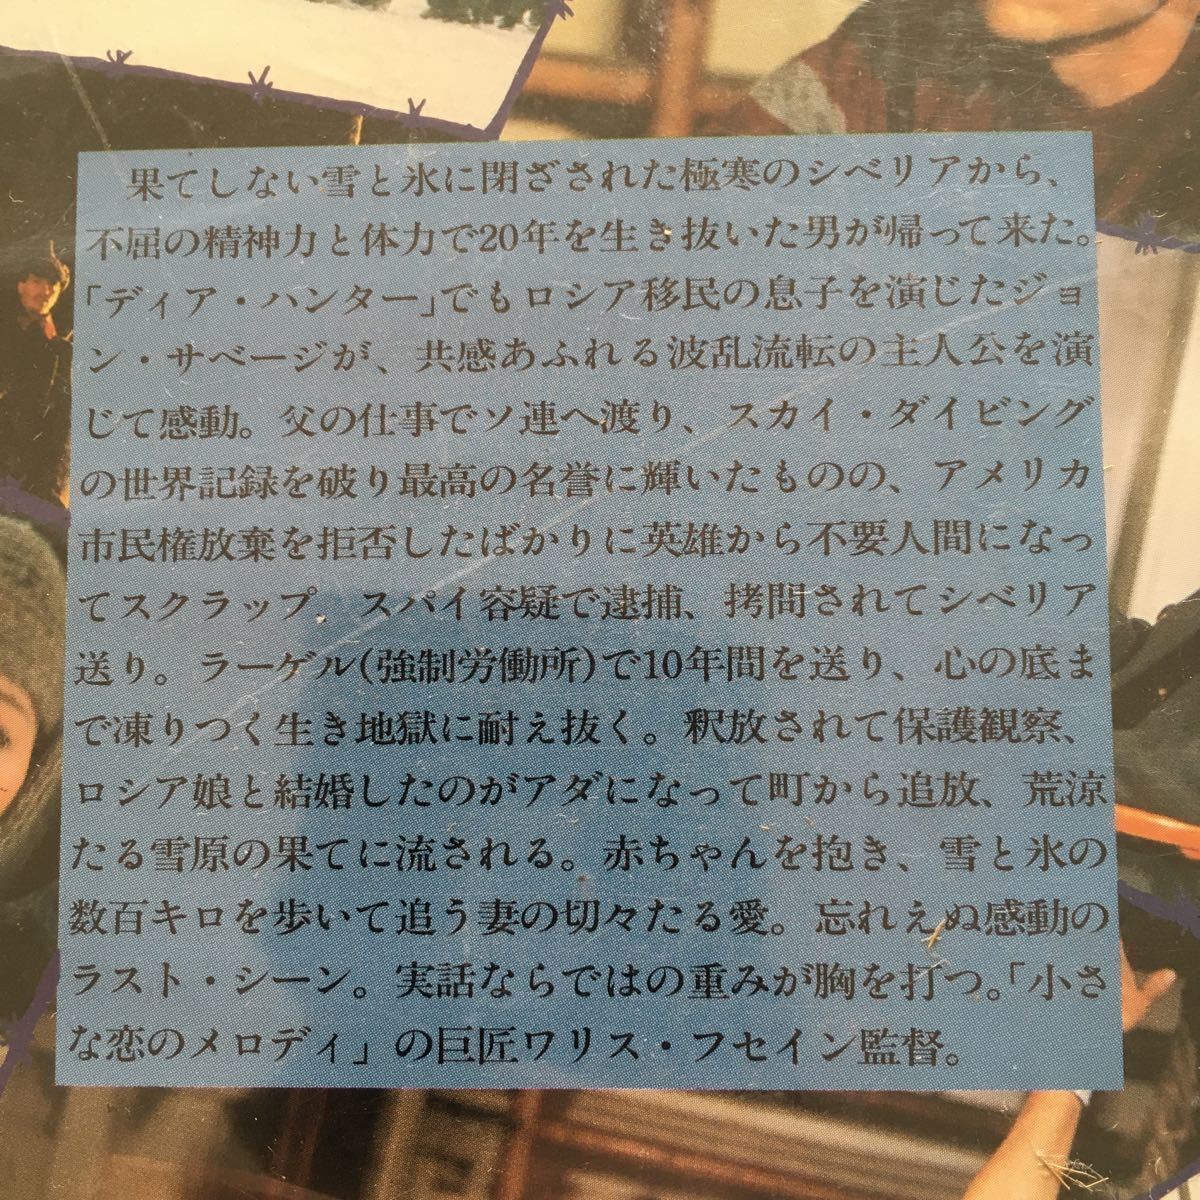 果てしない雪と氷に閉ざされた極寒のシベリアから、
不屈の精神力と体力で20年を生き抜いた男が帰って来た。
「ディア・ハンター」でもロシア移民の息子を演じたジョ
ン・サベージが、共感あふれる波乱流転の主人公を演
じて感動。父の仕事でソ連へ渡り、スカイ・ダイビング
の世界記録を破り最高の名誉に輝いたものの、アメリカ
市民権放棄を拒否したばかりに英雄から不要人間になっ
てスクラップ。スパイ容疑で逮捕、拷問されてシベリア
送り。ラーゲル(強制労働所)で10年間を送り、心の底ま
で凍りつく生き地獄に耐え抜く。釈放されて保護観察、
ロシア娘と結婚したのがアダになって町から追放、荒涼
たる雪原の果てに流される。赤ちゃんを抱き、雪と氷の
数百キロを歩いて追う妻の切々たる愛。忘れえぬ感動の
ラスト・シーン。実話ならではの重みが胸を打つ。「小さ
な恋のメロディ」の巨匠ワリス・フセイン監督。